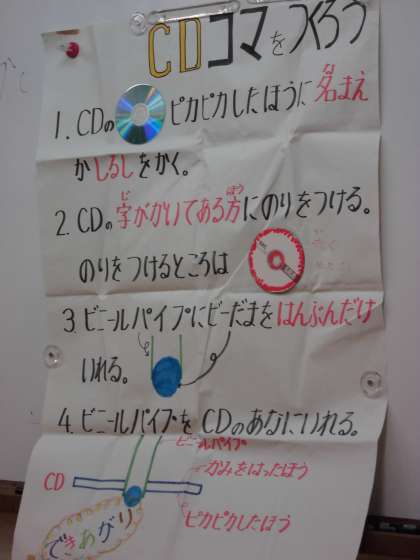 CDコマをつくろう
1. CDの ピカピカしたほうに名まえ
な
かしるしをかく。
2. CDの字がかいてある方にのりをつける。
じ ほう
のりをつけるところは
3. ビニールパイプにビーだまをはんぶんだけ
いれる。
4. ビニールパイプをCDのあなにいれる。
ビニールパイプ
CD
かみをはったほう
ピカピカしたほう
できあがり